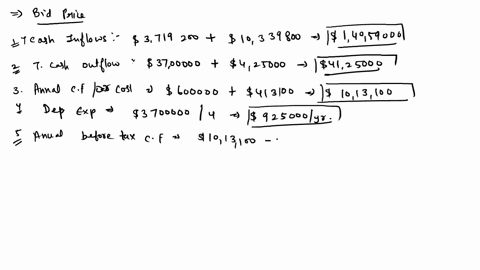 ⇒ Bid Price
1. T Cash Inflows :- $ 3,719 200 + $ 10,339800 → $ 1,40,59000
2 T. Cash outflow :- $ 37,00000 + $ 4,25000 → $ 41,25000
3. Annal c.f / cost → $ 600000 + $ 413100 → $ 10,13,100
4 Dep Exp → $ 3700000 / 4 → $ 925000/yr.
5 Anual before tax c.f → $ 10,13,100 -